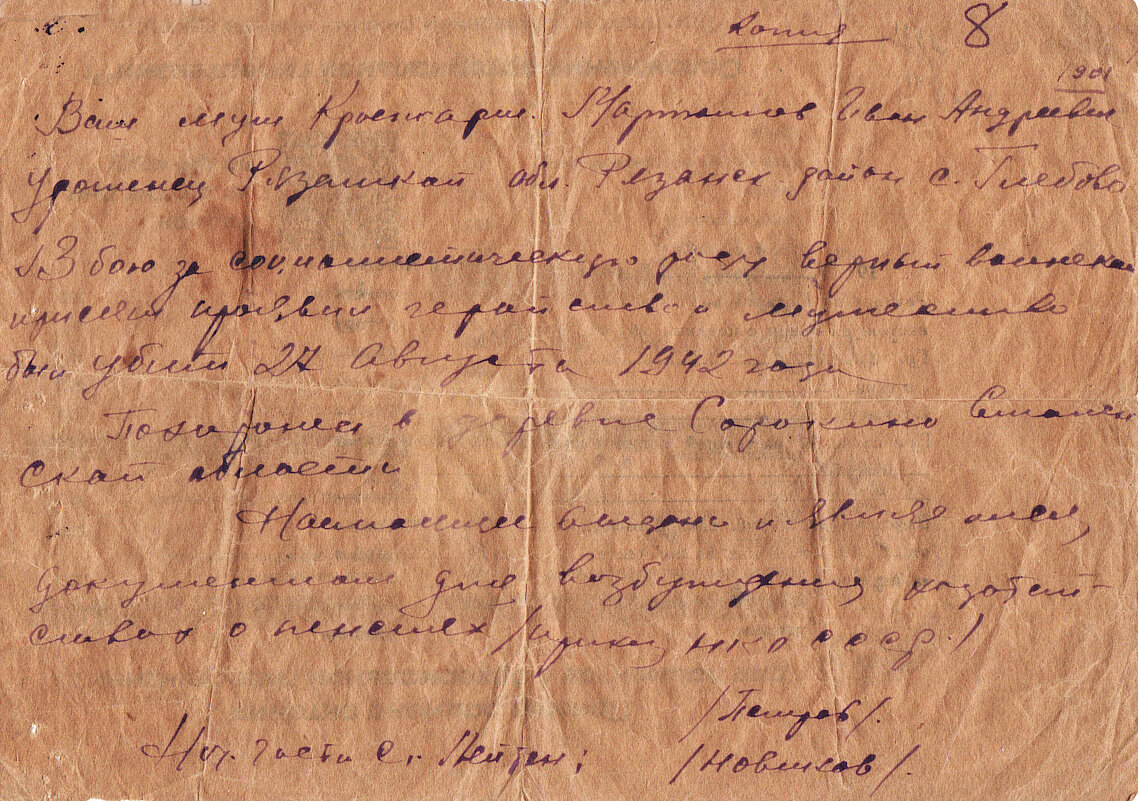 Копия 8
1901
Ваш муж Красноарм. Мартышов Иван Андреевич
Уроженец Рязанской обл. Рязанск район с. Глебово
В бою за социалистическую роду верный воинской
присяги проявил геройство и мужество
был убит 27 Августа 1942 года
Похоронен в деревне Сорокино Смолен
ской области
Настоящее выдано и является
документом для возбуждения ходатай-
ствах о пенсиях /приказ нко СССР/
/Петров/.
Нач. части Ст. Лейтен; /Новиков/.